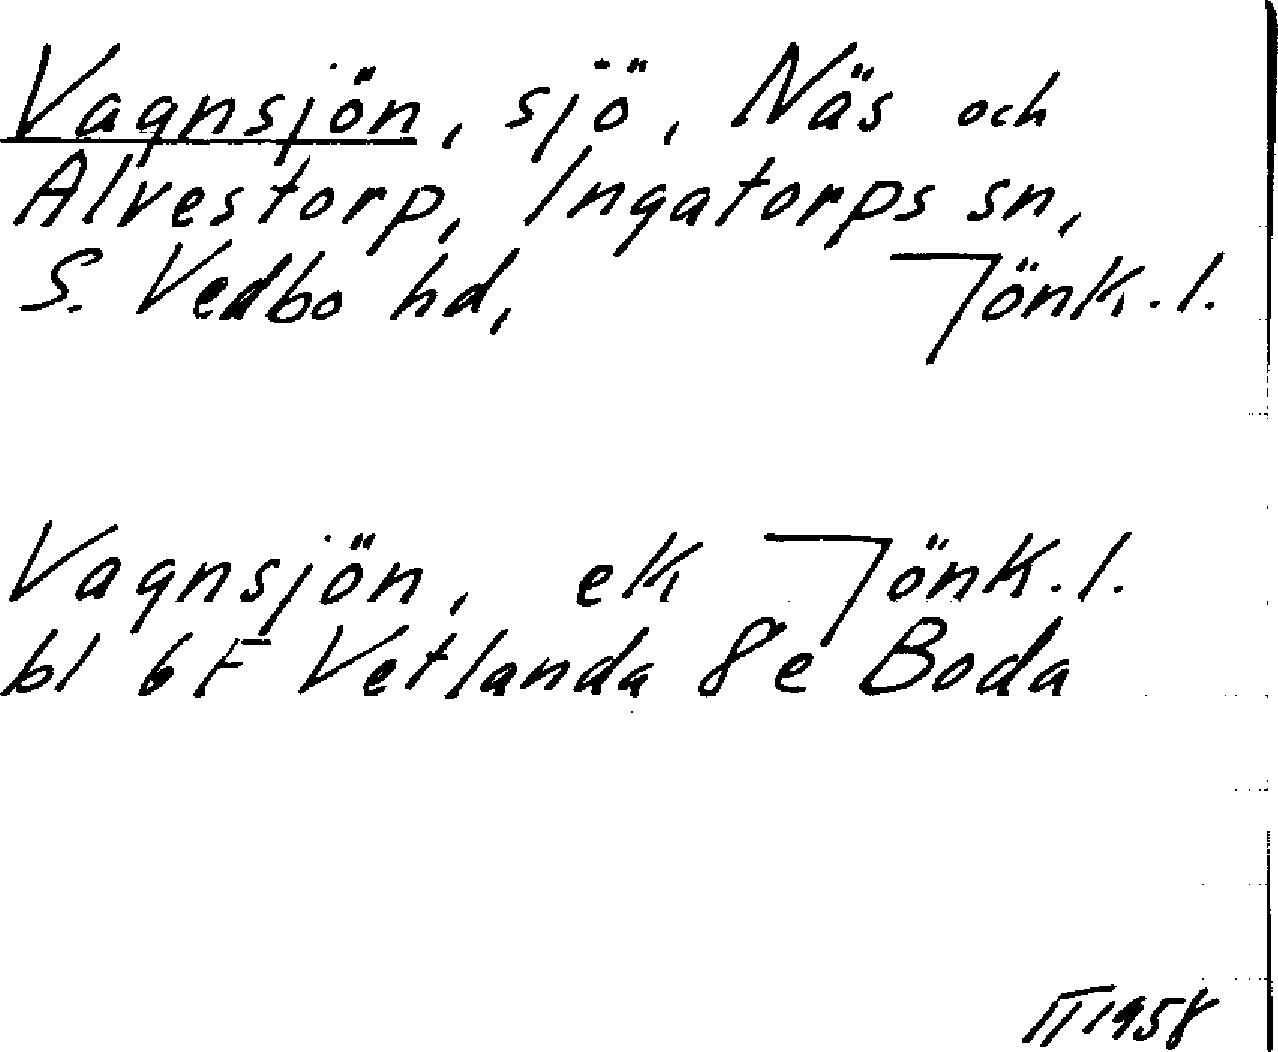 Vagnsjön, sjö, Näs och
Alvestorp, Ingatorps sn,
S. Vedbo hd, Jönk. l.
Vagnsjön, ek Jönk. l.
bl 6 F Vetlanda 8e Boda
II 1958